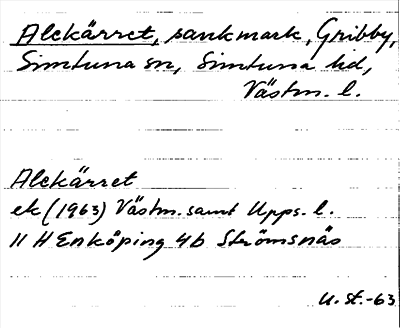 Alekärret, sankmark, Gribby,
Simtuna sn, Simtuna hd,
Västm. l.
Alekärret
ek (1963) Västm. samt Upps. l.
11 H Enköping 4b Strömsnäs
U. St. -63